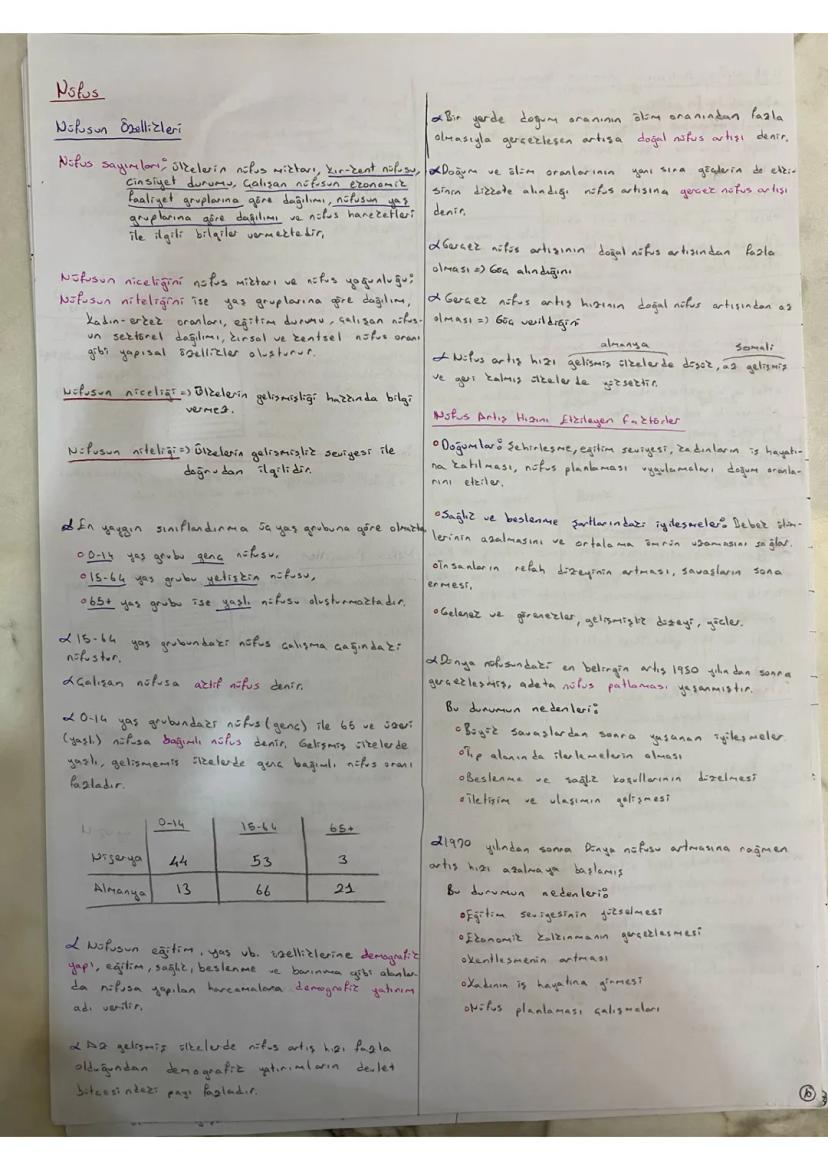 Nüfus
Nüfusun Özellikleri
Nüfus sayımları; ülkelerin nüfus miktarı, kır-kent nüfusu,
cinsiyet durumu, çalışan nüfusun ekonomik
faaliyet gruplarına göre dağılımı, nüfusun yaş
gruplarına göre dağılımı ve nüfus hareketleri
ile ilgili bilgiler vermektedir.
Nüfusun niceliğini nüfus miktarı ve nüfus yoğunluğu;
Nüfusun niteliğini ise yaş gruplarına göre dağılım,
kadın-erkek oranları, eğitim durumu, çalışan nüfus-
un sektörel dağılımı, kırsal ve kentsel nüfus oranı
gibi yapısal özellikler oluşturur.
Nüfusun niceliği => Ülkelerin gelişmişliği hakkında bilgi
vermez.
Nüfusun niteliği => Ülkelerin gelişmişlik seviyesi ile
doğrudan ilgilidir.
En yaygın sınıflandırma üç yaş grubuna göre olmakta
0-14 yaş grubu genç nüfusu,
15-64 yaş grubu yetişkin nüfusu,
65+ yaş grubu ise yaşlı nüfusu oluşturmaktadır.
15-64 yaş grubundaki nüfus çalışma çağındaki
nüfustur.
Çalışan nüfusa aktif nüfus denir.
0-14 yaş grubundaki nüfus (genç) ile 65 ve üzeri
(yaşlı) nüfusa bağımlı nüfus denir. Gelişmiş ülkelerde
yaşlı, gelişmemiş ülkelerde genç bağımlı nüfus oranı
fazladır.
0-14 15-64 65+
Nijerya 44 53 3
Almanya 13 66 21
Nüfusun eğitim, yaş vb. özelliklerine demografik
yapı, eğitim, sağlık, beslenme ve barınma gibi alanlar-
da nüfusa yapılan harcamalara demografik yatırım
adı verilir.
Az gelişmiş ülkelerde nüfus artış hızı fazla
olduğundan demografik yatırımların devlet
bütçesindeki payı fazladır.
Bir yerde doğum oranının ölüm oranından fazla
olmasıyla gerçekleşen artışa doğal nüfus artışı denir.
Doğum ve ölüm oranlarının yanı sıra göçlerin de etki-
sinin dikkate alındığı nüfus artışına gerçek nüfus artışı
denir.
Gerçek nüfus artışının doğal nüfus artışından fazla
olması => Göç alındığını
Gerçek nüfus artış hızının doğal nüfus artışından az
olması => Göç verildiğini
almanya somali
Nüfus artış hızı gelişmiş ülkelerde düşük, az gelişmiş
ve geri kalmış ülkelerde yüksektir.
Nüfus Artış Hızını Etkileyen Faktörler
Doğumlar: Şehirleşme, eğitim seviyesi, kadınların iş hayatı-
na katılması, nüfus planlaması uygulamaları doğum oranla-
rını etkiler.
Sağlık ve beslenme şartlarındaki iyileşmeler: Bebek ölüm-
lerinin azalmasını ve ortalama ömrün uzamasını sağlar.
İnsanların refah düzeyinin artması, savaşların sona
ermesi,
Gelenek ve görenekler, gelişmişlik düzeyi, göçler.
Dünya nüfusundaki en belirgin artış 1950 yılından sonra
gerçekleşmiş, adeta nüfus patlaması yaşanmıştır.
Bu durumun nedenleri:
Büyük savaşlardan sonra yaşanan iyileşmeler
Tıp alanında ilerlemelerin olması
Beslenme ve sağlık koşullarının düzelmesi
İletişim ve ulaşımın gelişmesi
1970 yılından sonra Dünya nüfusu artmasına rağmen
artış hızı azalmaya başlamış
Bu durumun nedenleri:
Eğitim seviyesinin yükselmesi
Ekonomik kalkınmanın gerçekleşmesi
Kentleşmenin artması
Kadının iş hayatına girmesi
Nüfus planlaması çalışmaları